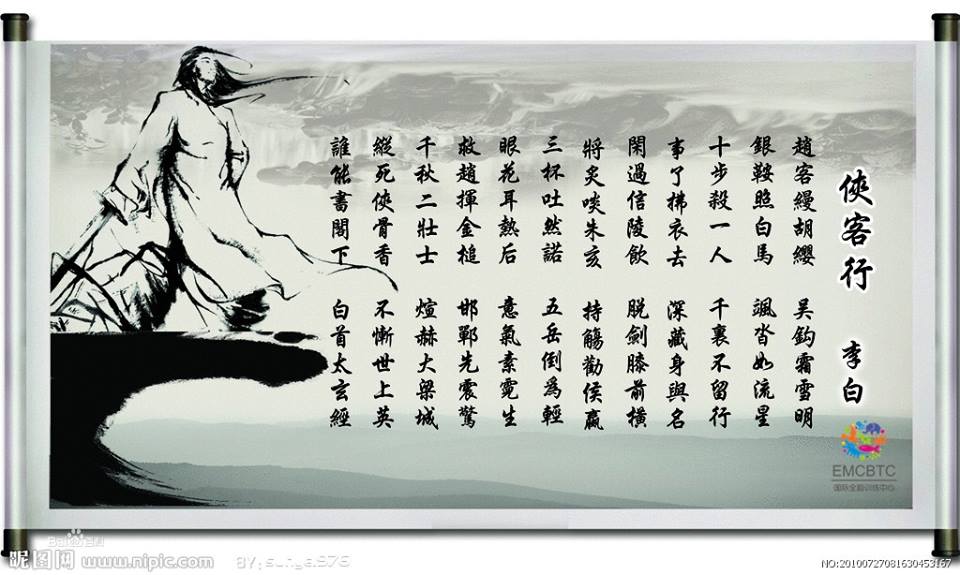 俠客行 李白
趙客縵胡纓 吳鈎霜雪明
銀鞍照白馬 颯沓如流星
十步殺一人 千裏不留行
事了拂衣去 深藏身與名
閑過信陵飲 脫劍膝前橫
將炙啖朱亥 持觴勸侯嬴
三杯吐然諾 五岳倒爲輕
眼花耳熱后 意氣素霓生
救趙揮金槌 邯鄲先震驚
千秋二壯士 煊赫大梁城
縱死俠骨香 不慚世上英
誰能書閣下 白首太玄經
EMCBTC
国际全脑训练中心
昵图网 www.nipic.com
NO:20100727081630453167